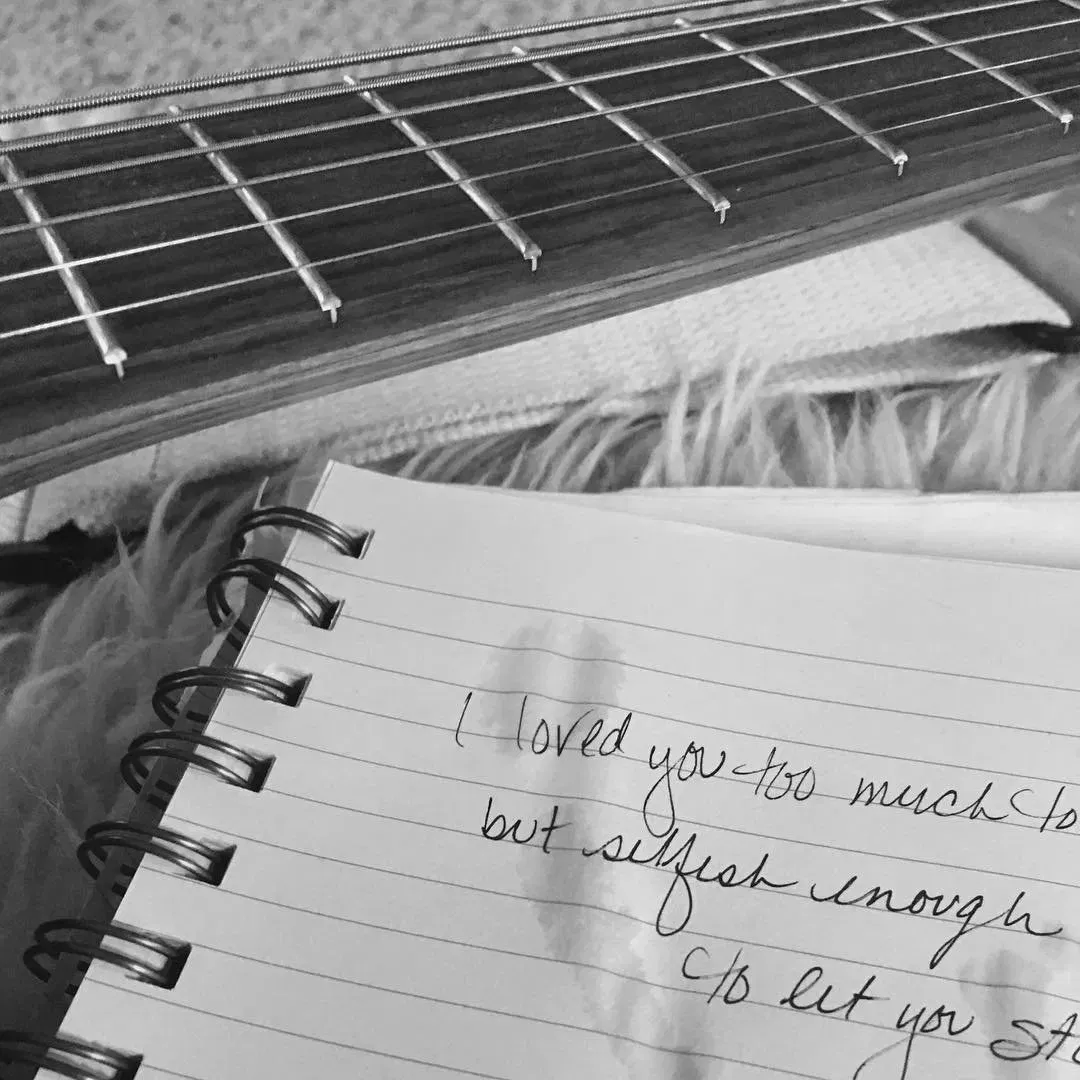 I loved you too much to
but selfish enough
to let you